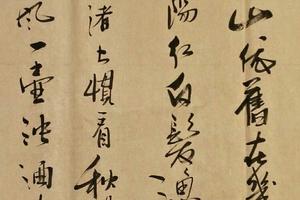 山依舊在幾
陽紅白髮漁
渚上慣看秋
風一壺濁酒